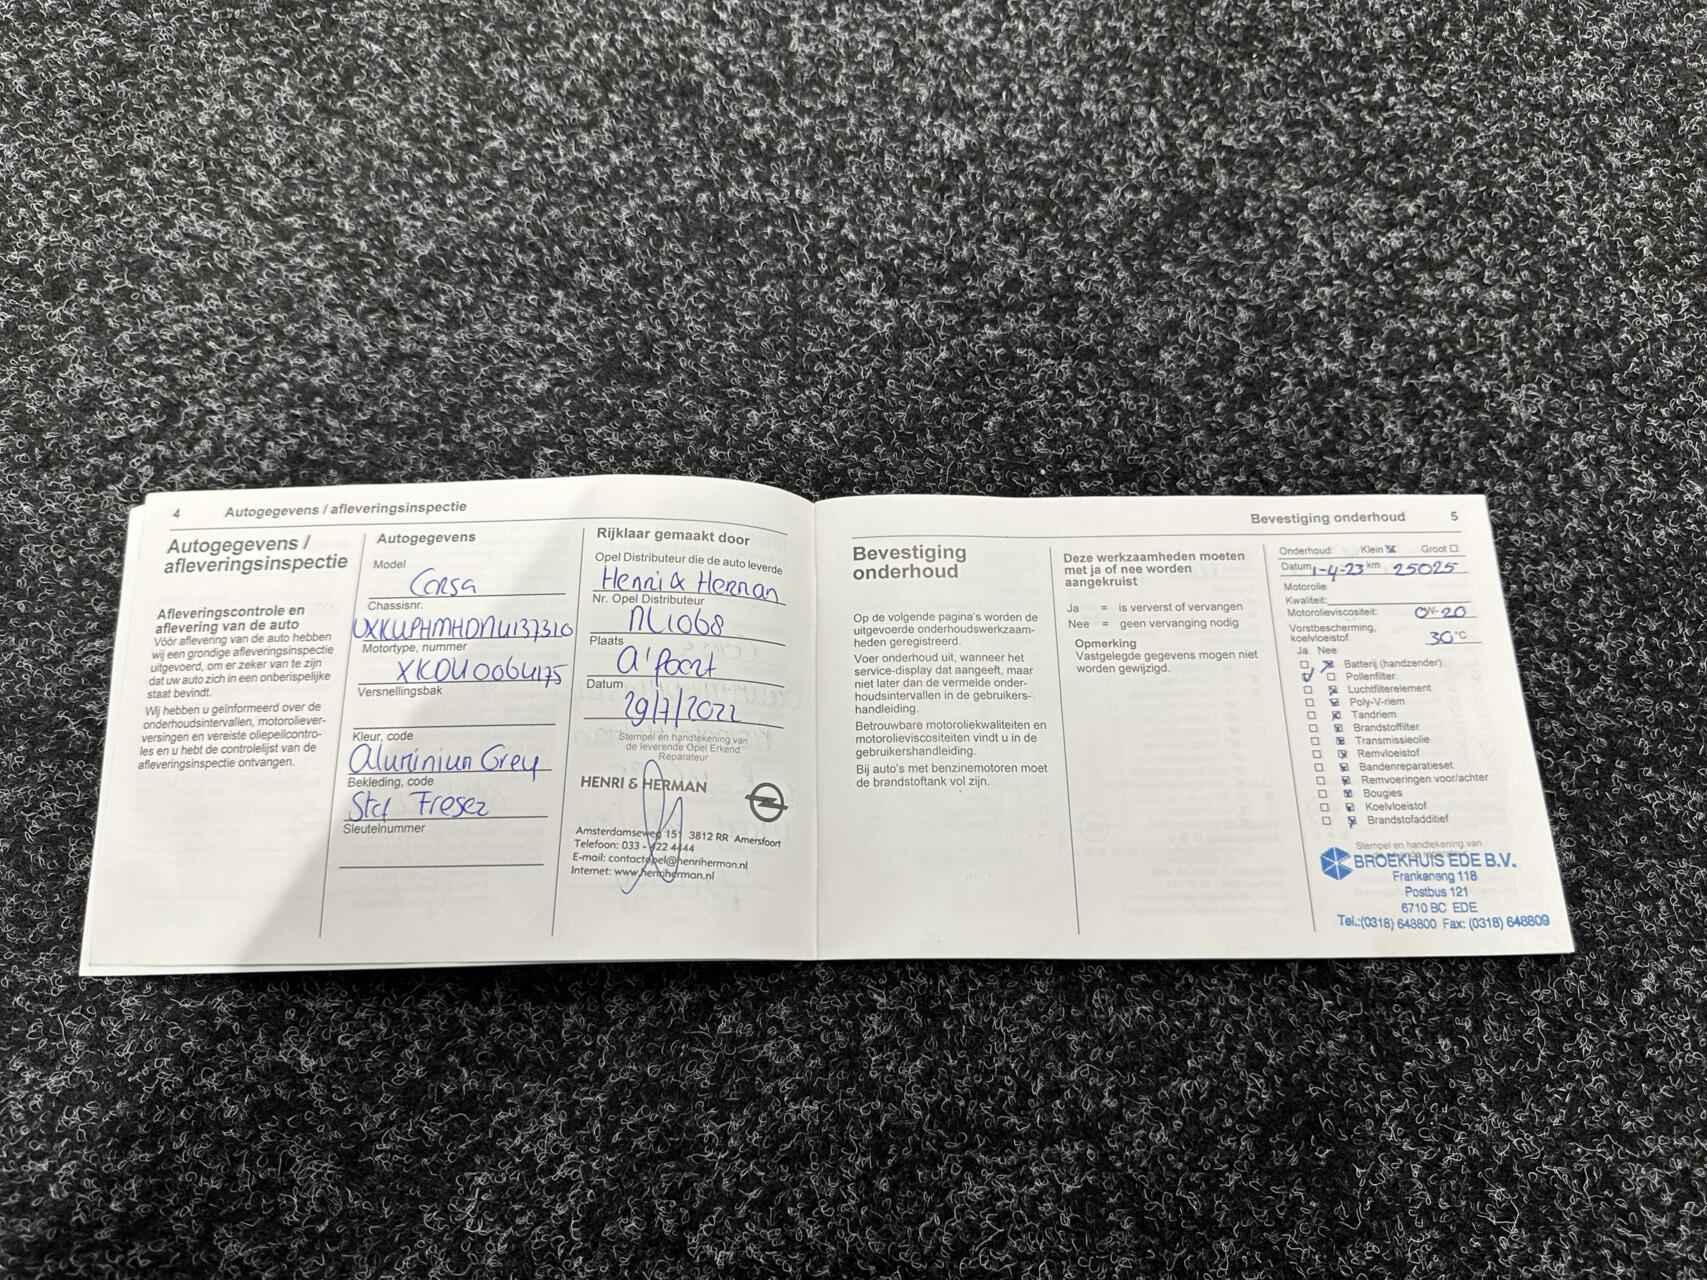 4 Autogegevens / afleveringsinspectie
Autogegevens /
afleveringsinspectie
Afleveringscontrole en
aflevering van de auto
Vóór aflevering van de auto hebben
wij een grondige afleveringsinspectie
uitgevoerd, om er zeker van te zijn
dat uw auto zich in een onberispelijke
staat bevindt.
Wij hebben u geïnformeerd over de
onderhoudsintervallen, motoroliever-
versingen en vereiste oliepeilcontro-
les en u hebt de controlelijst van de
afleveringsinspectie ontvangen.
Autogegevens
Model
Corsa
Chassisnr.
VXKUPHMHDNU137310
Motortype, nummer
XKOU0064175
Versnellingsbak
Kleur, code
Aluminium Grey
Bekleding, code
Sleutelnummer
Rijklaar gemaakt door
Opel Distributeur die de auto leverde
Henri & Herman
Nr. Opel Distributeur
NL1068
Plaats
A'Poort
Datum
29/7/2022
Stempel en handtekening van
de leverende Opel Erkend
Reparateur
HENRI & HERMAN
Amsterdamseweg 151 3812 RR Amersfoort
Telefoon: 033 - 422 4444
E-mail: contactopel@henriherman.nl
Internet: www.henriherman.nl
Bevestiging onderhoud 5
Bevestiging
onderhoud
Op de volgende pagina's worden de
uitgevoerde onderhoudswerkzaam-
heden geregistreerd.
Voer onderhoud uit, wanneer het
service-display dat aangeeft, maar
niet later dan de vermelde onder-
houdsintervallen in de gebruikers-
handleiding.
Betrouwbare motoroliekwaliteiten en
motorolieviscositeiten vindt u in de
gebruikershandleiding.
Bij auto's met benzinemotoren moet
de brandstoftank vol zijn.
Deze werkzaamheden moeten
met ja of nee worden
aangekruist
Ja = is ververst of vervangen
Nee = geen vervanging nodig
Opmerking
Vastgelegde gegevens mogen niet
worden gewijzigd.
Onderhoud: Klein Groot
Datum 1-4-23 km 25025
Motorolie
Kwaliteit:
Motorolieviscositeit: 0W-20
Vorstbescherming,
koelvloeistof 30 °C
Ja Nee
Batterij (handzender)
Pollenfilter
Luchtfilterelement
Poly-V-riem
Tandriem
Brandstoffilter
Transmissieolie
Remvloeistof
Bandenreparatieset
Remvoeringen voor/achter
Bougies
Koelvloeistof
Brandstofadditief
Stempel en handtekening van
BROEKHUIS EDE B.V.
Frankeneng 118
Postbus 121
6710 BC EDE
Tel.:(0318) 648800 Fax: (0318) 648809